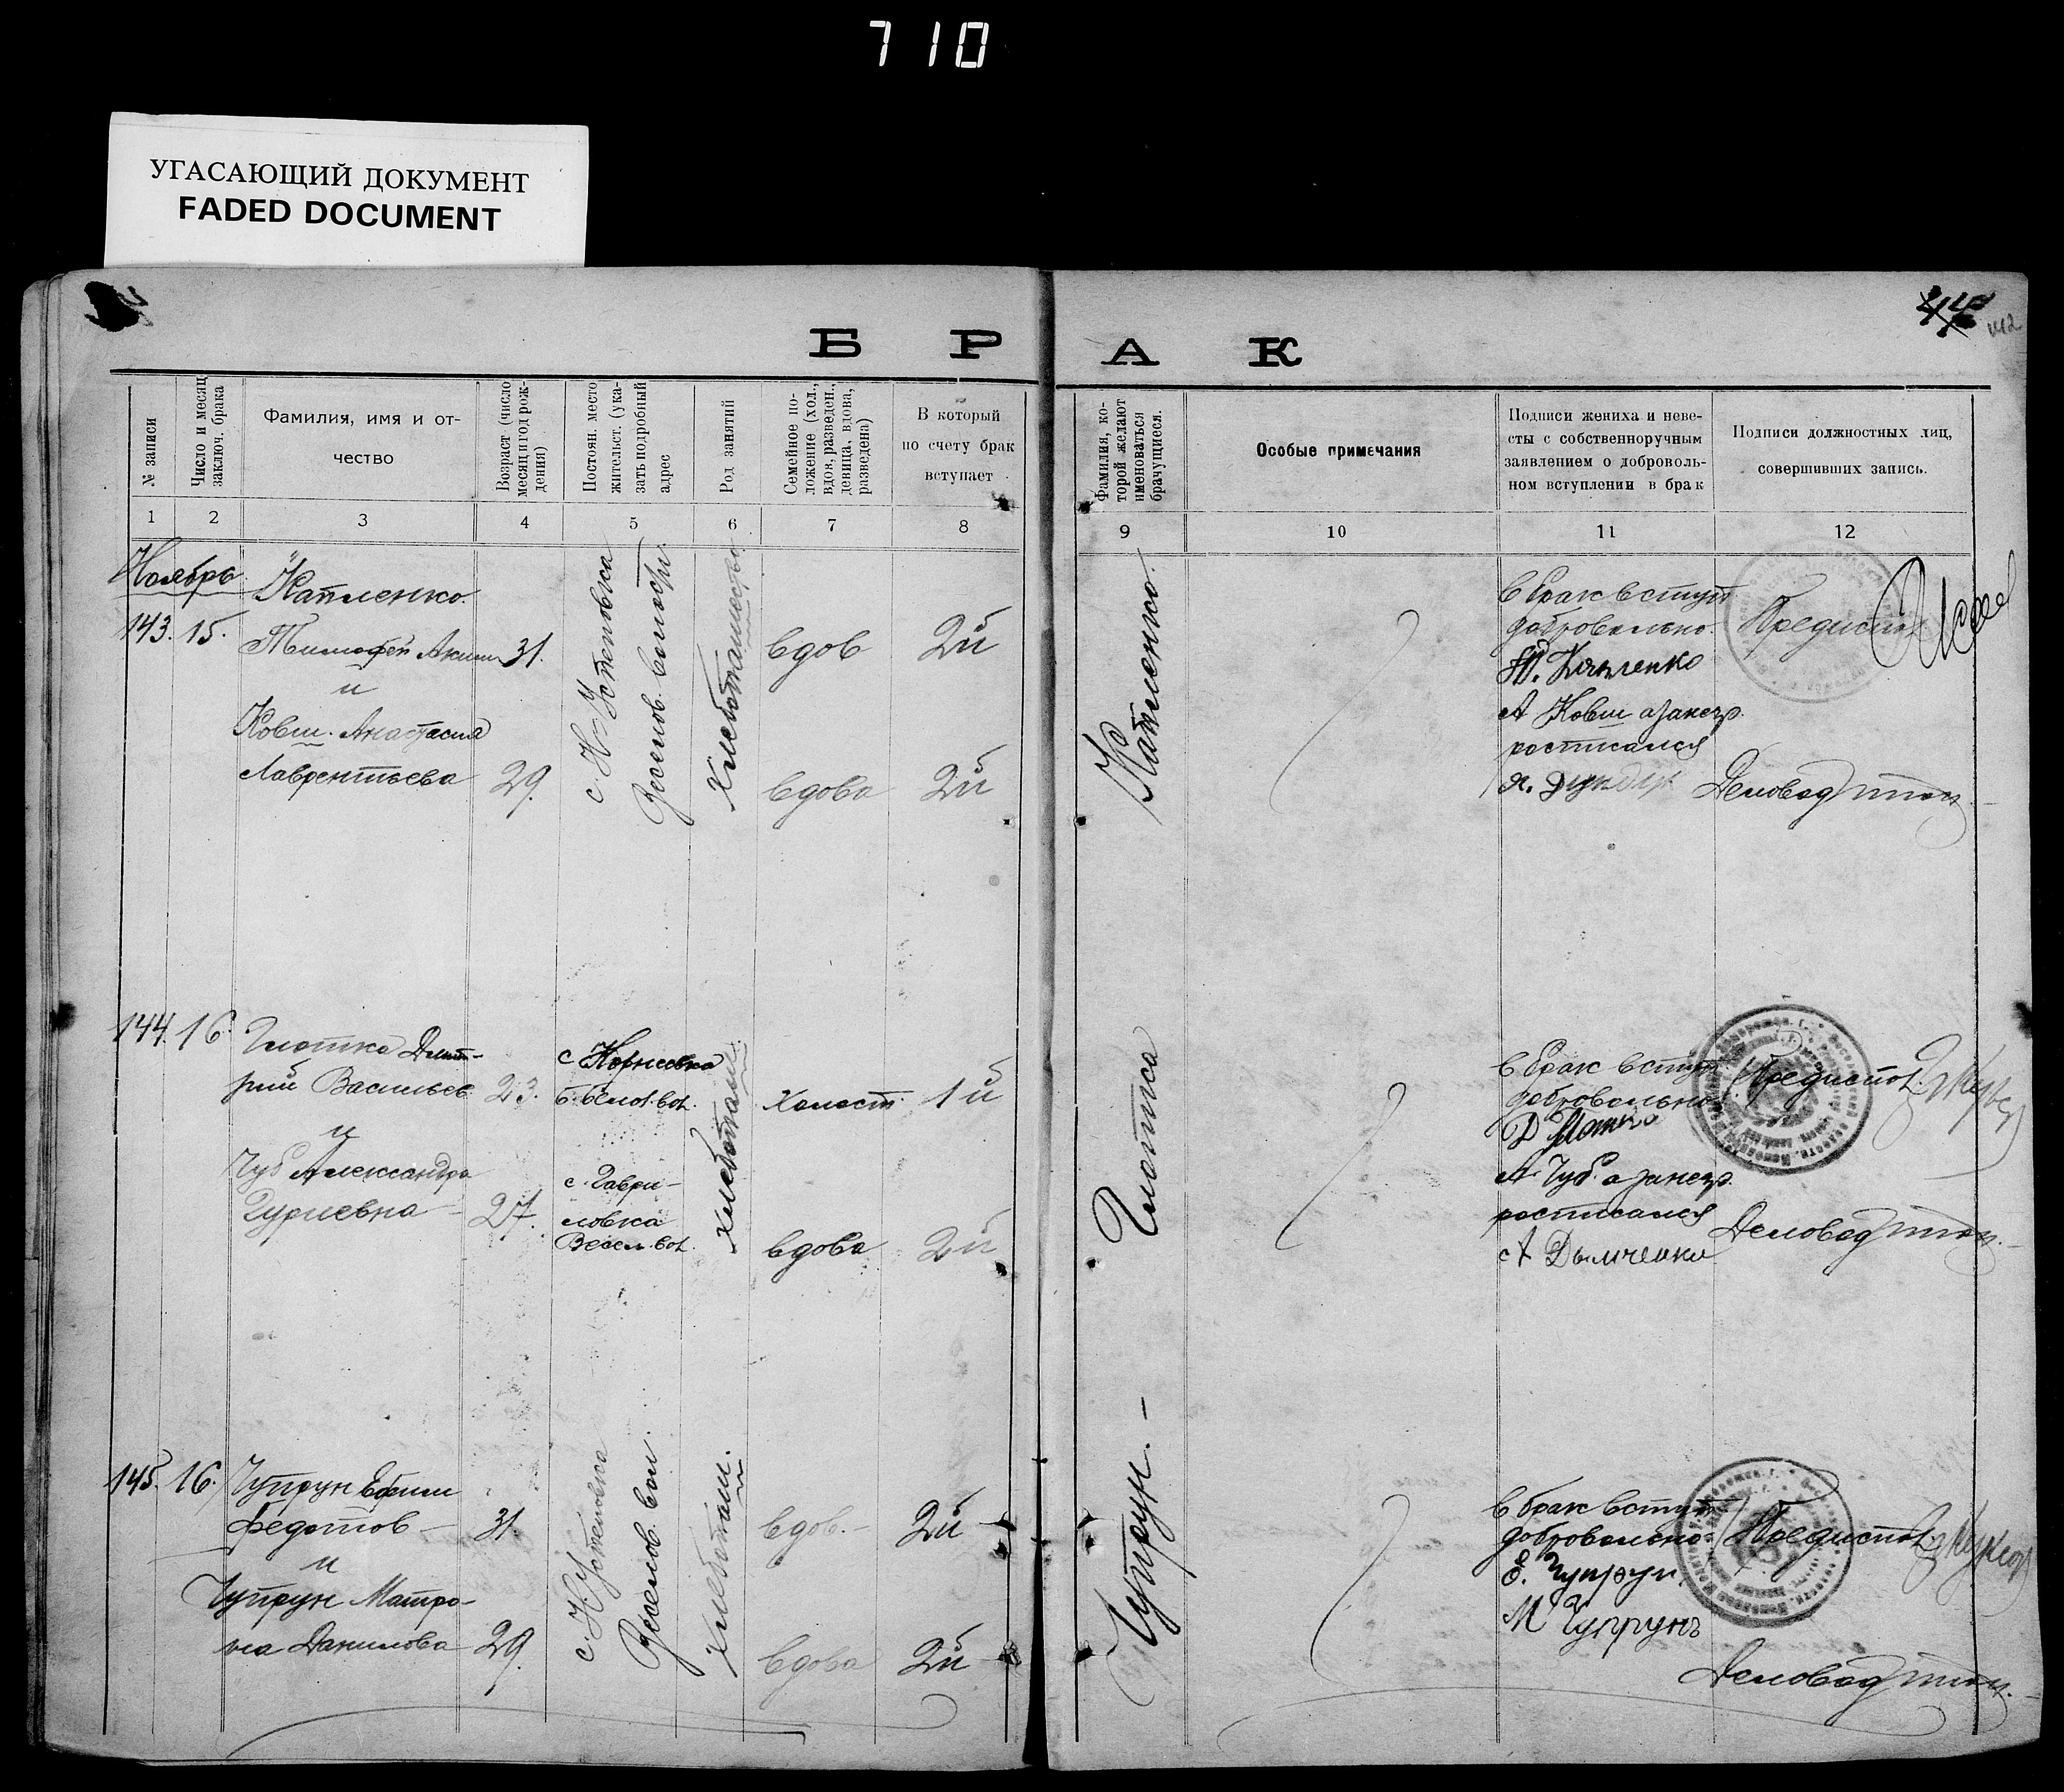 710
УГАСАЮЩИЙ ДОКУМЕНТ
FADED DOCUMENT
БРАК
142
№ записи
Число и месяц
заключ. брака
Фамилия, имя и от-
чество
Возраст (число
месяц и год рож-
дения)
Постоян. место
жительст. (ука-
зать подробный
адрес
Род занятий
Семейное по-
ложение (хол.,
вдов, разведен.,
девица, вдова,
разведена)
В который
по счету брак
вступает
Фамилия, ко-
торой желают
именоваться
брачущиеся.
Особые примечания
Подписи жениха и неве-
сты с собственноручным
заявлением о доброволь-
ном вступлении в брак
Подписи должностных лиц,
совершивших запись.
1 2 3 4 5 6 7 8 9 10 11 12
Ноябрь
143. 15.
Капленко
Тимофей Аким
31.
и
Ковш. Анастасия
Лаврентьева
29.
с. Н-Устеповка
Веселов. волости
Хлебопашество
вдов
2й
вдова
2й
Капленко.
в брак вступ
добровольно.
Т. Капленко
А Ковш а за негр.
росписался
Предиспол
Деловод
144. 16.
Глотка Дмит-
рий Васильев
23.
и
Чуб Александра
Гуриевна
27.
с Корнеевка
Б. Белоз. вол.
с. Гаври-
ловка
Весел. вол.
хлебопаш.
холост.
1й
вдова
2й
Глотка
в брак вступ.
добровольно
Д Глотка
А Чуб. а за негр.
росписался
А Дымченко
Предиспол.
Деловод
145. 16.
Чупрун Ефим
Федотов
31.
и
Чупрун Матро-
на Данилова
29.
с. Н-Устеповка
Веселов. вол.
хлебопаш.
вдов.
2й
вдова
2й
Чупрун.
в брак вступ
добровольно
Е. Чупрун
М Чупрунъ
Предиспол.
Деловод